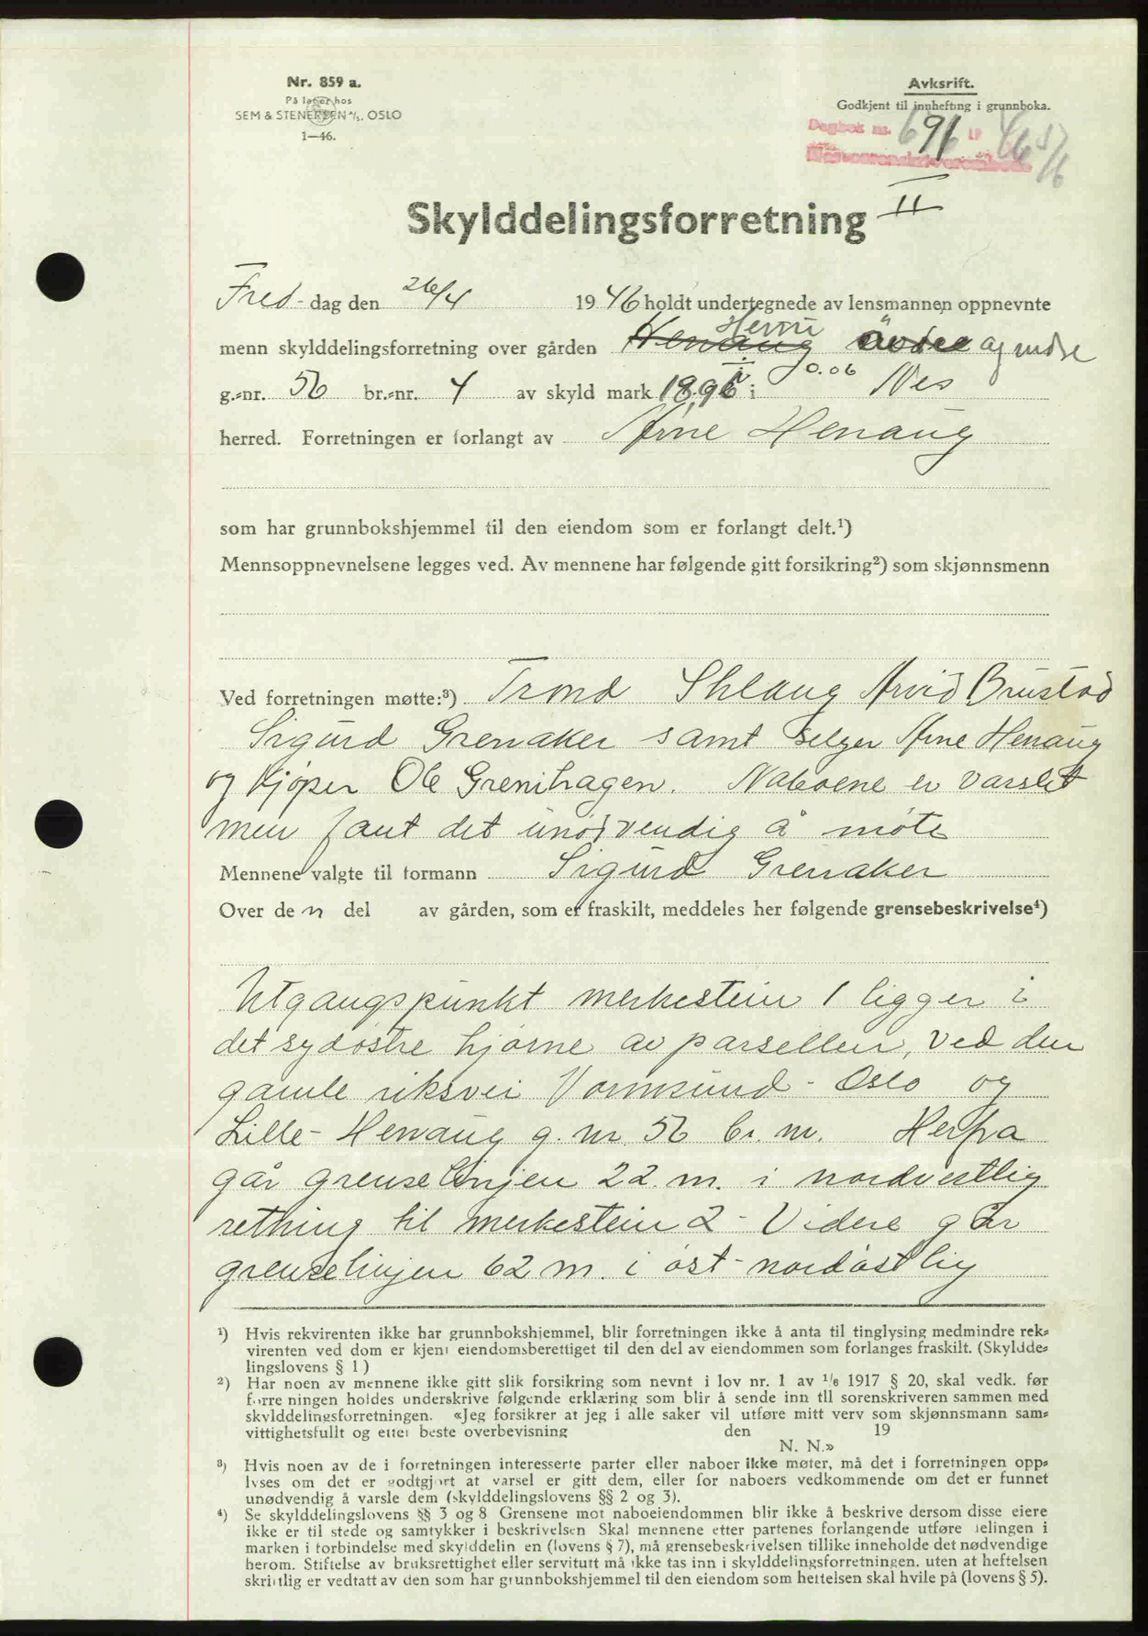 Nr. 859 a.
På lager hos
SEM & STENERSEN A/S. OSLO
1—46.
Avksrift.
Godkjent til innhefting i grunnboka.
Dagbok nr. 691
Skylddelingsforretning II
Fred- dag den 26/4 1946 holdt undertegnede av lensmannen oppnevnte
menn skylddelingsforretning over gården Henaug
g.nr. 56 br.nr. 4 av skyld mark 0.06 i Nes
herred. Forretningen er forlangt av Arne Henaug
som har grunnbokshjemmel til den eiendom som er forlangt delt.¹)
Mennsoppnevnelsene legges ved. Av mennene har følgende gitt forsikring²) som skjønnsmenn
Ved forretningen møtte:³) Trond Arvid Brustad
Sigurd Grenaker samt selger Arne Henaug
og kjøper Ole Grenihagen. Naboene er varslet
men fant det unødvendig å møte
Mennene valgte til formann Sigurd Grenaker
Over den del av gården, som er fraskilt, meddeles her følgende grensebeskrivelse⁴)
Utgangspunkt merkestein 1 ligger i
det sydøstre hjørne av parsellen, ved den
gamle riksvei Vormsund - Oslo og
Lille- Henaug g. nr 56 br. nr. Herfra
går grenselinjen 22 m. i nordvestlig
retning til merkestein 2 - Videre går
grenselinjen 62 m. i øst - nordøstlig
¹) Hvis rekvirenten ikke har grunnbokshjemmel, blir forretningen ikke å anta til tinglysing medmindre rek-
virenten ved dom er kjent eiendomsberettiget til den del av eiendommen som forlanges fraskilt. (Skyldde-
lingslovens § 1)
²) Har noen av mennene ikke gitt slik forsikring som nevnt i lov nr. 1 av 1/6 1917 § 20, skal vedk. før
forretningen holdes underskrive følgende erklæring som blir å sende inn til sorenskriveren sammen med
skylddelingsforretningen. «Jeg forsikrer at jeg i alle saker vil utføre mitt verv som skjønnsmann sam-
vittighetsfullt og etter beste overbevisning den 19
N. N.»
³) Hvis noen av de i forretningen interesserte parter eller naboer ikke møter, må det i forretningen opp-
lyses om det er godtgjort at varsel er gitt dem, eller for naboers vedkommende om det er funnet
unødvendig å varsle dem (skylddelingslovens §§ 2 og 3).
⁴) Se skylddelingslovens §§ 3 og 8 Grensene mot naboeiendommen blir ikke å beskrive dersom disse eiere
ikke er til stede og samtykker i beskrivelsen Skal mennene etter partenes forlangende utføre delingen i
marken i forbindelse med skylddelingen (lovens § 7), må grensebeskrivelsen tillike inneholde det nødvendige
herom. Stiftelse av bruksrettighet eller servitutt må ikke tas inn i skylddelingsforretningen, uten at heftelsen
skriftlig er vedtatt av den som har grunnbokshjemmel til den eiendom som heftelsen skal hvile på (lovens § 5).